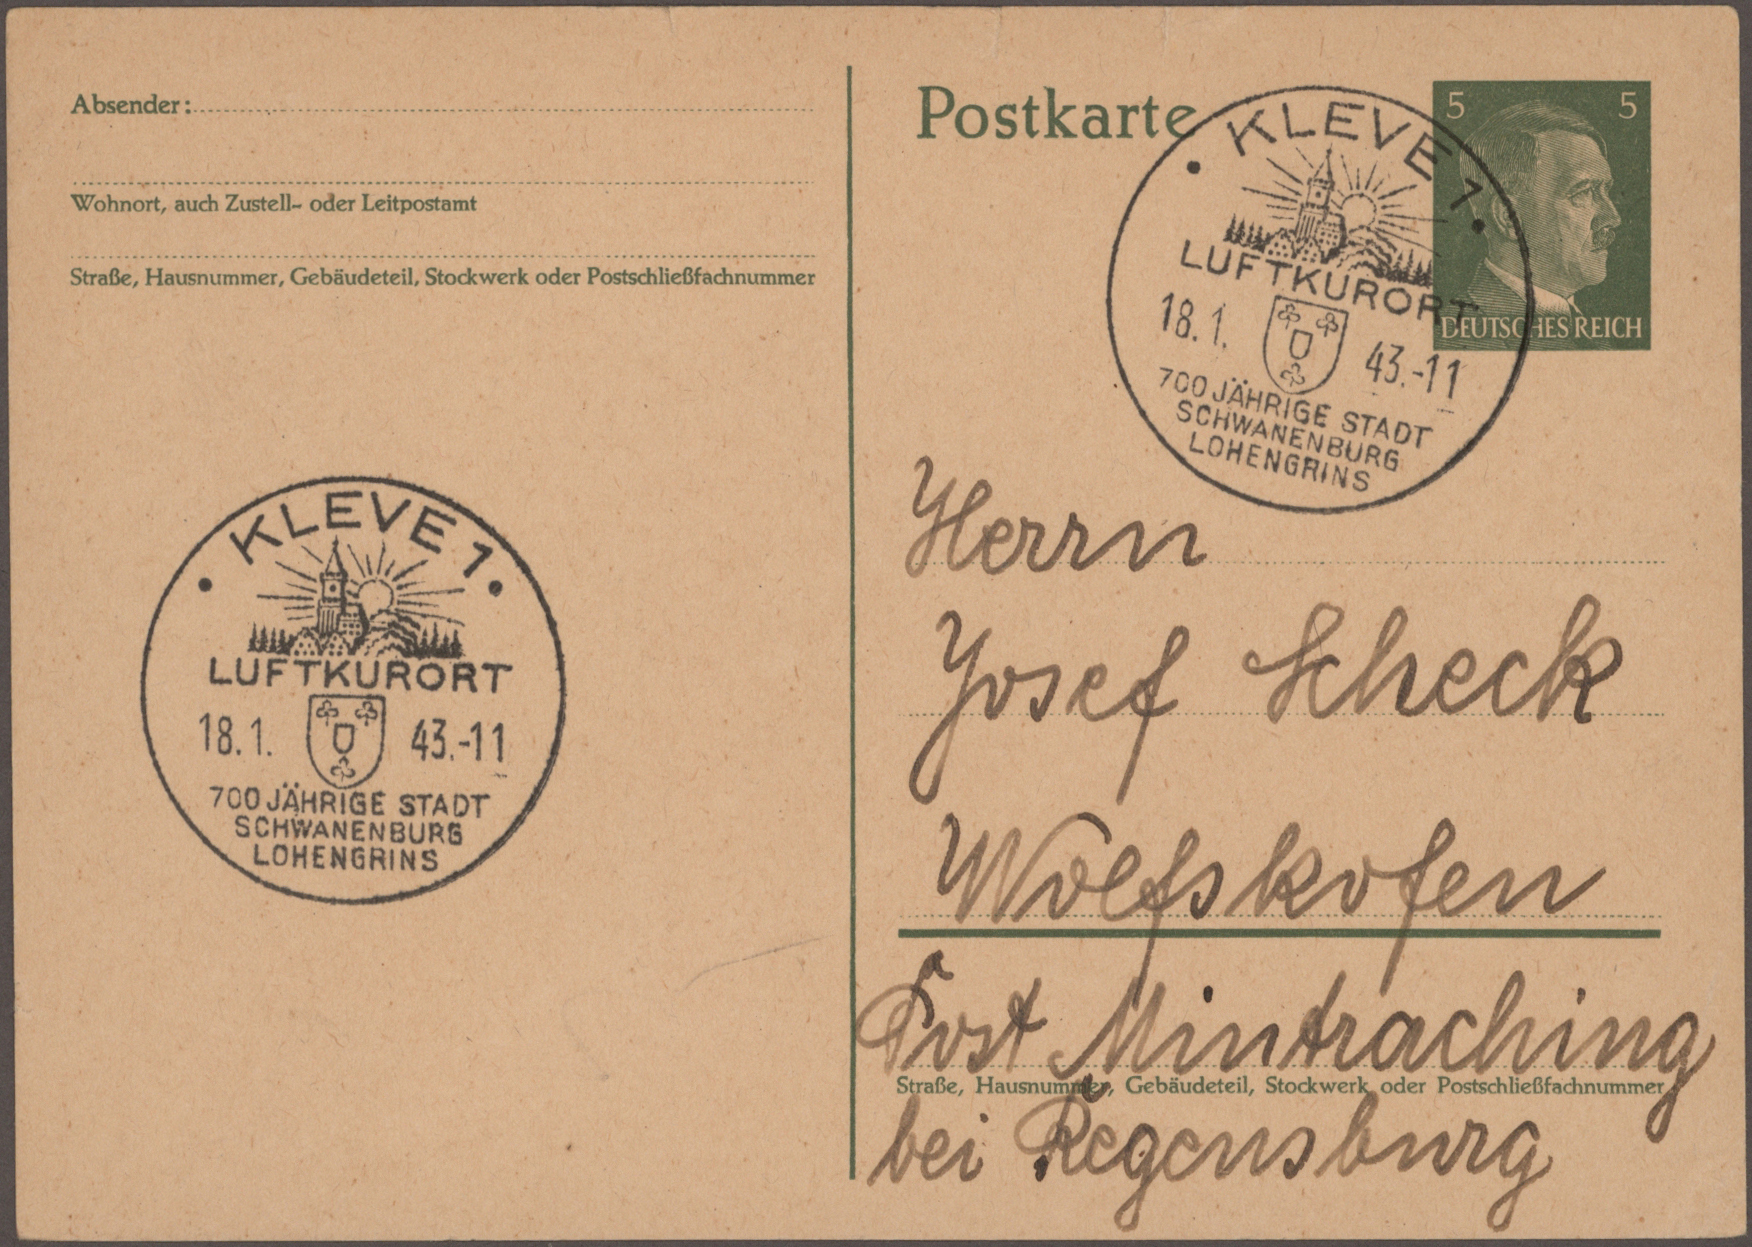 Absender:
Wohnort, auch Zustell- oder Leitpostamt
Straße, Hausnummer, Gebäudeteil, Stockwerk oder Postschließfachnummer
KLEVE 1
LUFTKURORT
18.1. 43.-11
700 JÄHRIGE STADT
SCHWANENBURG
LOHENGRINS
Postkarte
5 5
DEUTSCHES REICH
KLEVE 1
LUFTKURORT
18.1. 43.-11
700 JÄHRIGE STADT
SCHWANENBURG
LOHENGRINS
Herrn
Josef Scheck
Wolfskofen
Post Mintraching
Straße, Hausnummer, Gebäudeteil, Stockwerk oder Postschließfachnummer
bei Regensburg